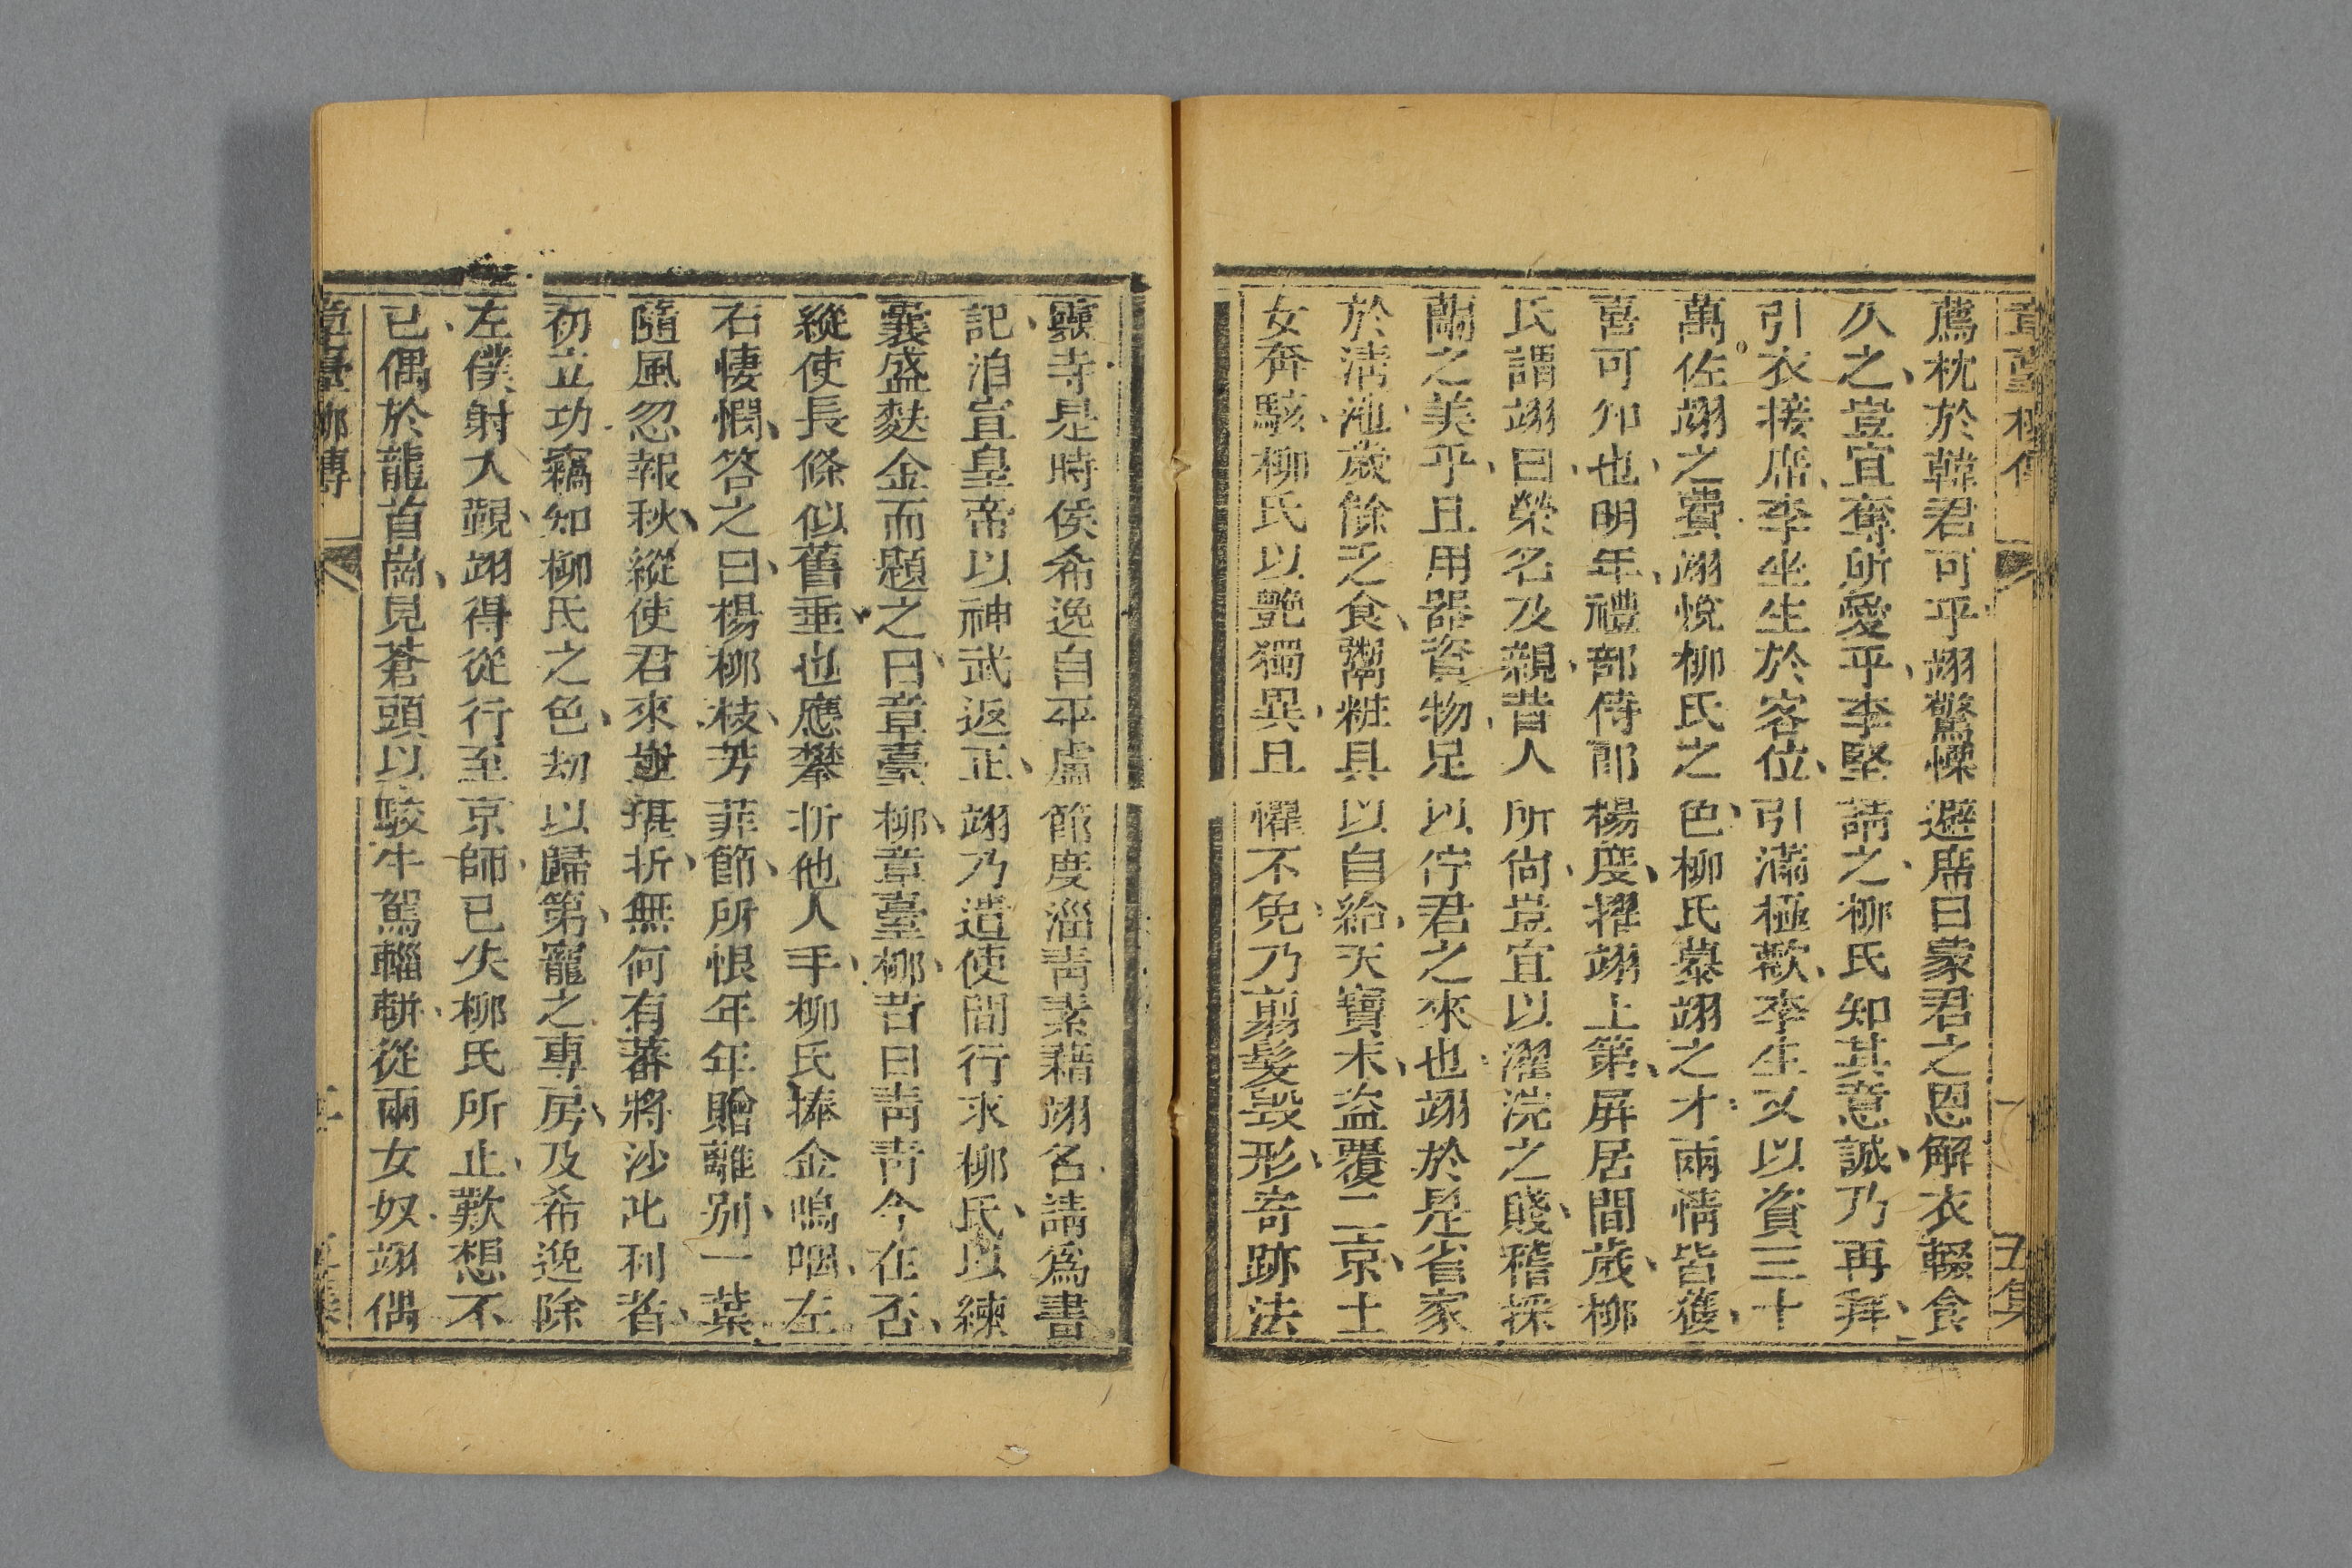 章臺柳傳 一 五集
薦枕於韓君可乎翊驚慄避席曰蒙君之恩解衣輟食
久之豈宜奪所愛乎李堅請之柳氏知其意誠乃再拜
引衣接席李坐生於客位引滿極歡李生又以資三十
萬佐翊之費翊悅柳氏之色柳氏慕翊之才兩情皆獲
喜可知也明年禮部侍郎楊度擢翊上第屏居間歲柳
氏謂翊曰榮名及親昔人所尚豈宜以濯浣之賤稽採
蘭之美乎且用器資物足以佇君之來也翊於是省家
於淸池歲餘乏食鬻粧具以自給天寶末盜覆二京士
女奔駭柳氏以艶獨異且懼不免乃剪髮毀形寄跡法
靈寺是時侯希逸自平盧節度淄靑素藉翊名請爲書
記洎宣皇帝以神武返正翊乃遣使間行求柳氏以練
囊盛麩金而題之曰章臺柳章臺柳昔日靑靑今在否
縱使長條似舊垂也應攀折他人手柳氏捧金嗚咽左
右悽憫答之曰楊柳枝芳菲節所恨年年贈離別一葉
隨風忽報秋縱使君來豈堪折無何有蕃將沙叱利者
初立功竊知柳氏之色刼以歸第寵之專房及希逸除
左僕射入覲翊得從行至京師已失柳氏所止歎想不
已偶於龍首岡見蒼頭以駮牛駕輜軿從兩女奴翊偶
章臺柳傳 二